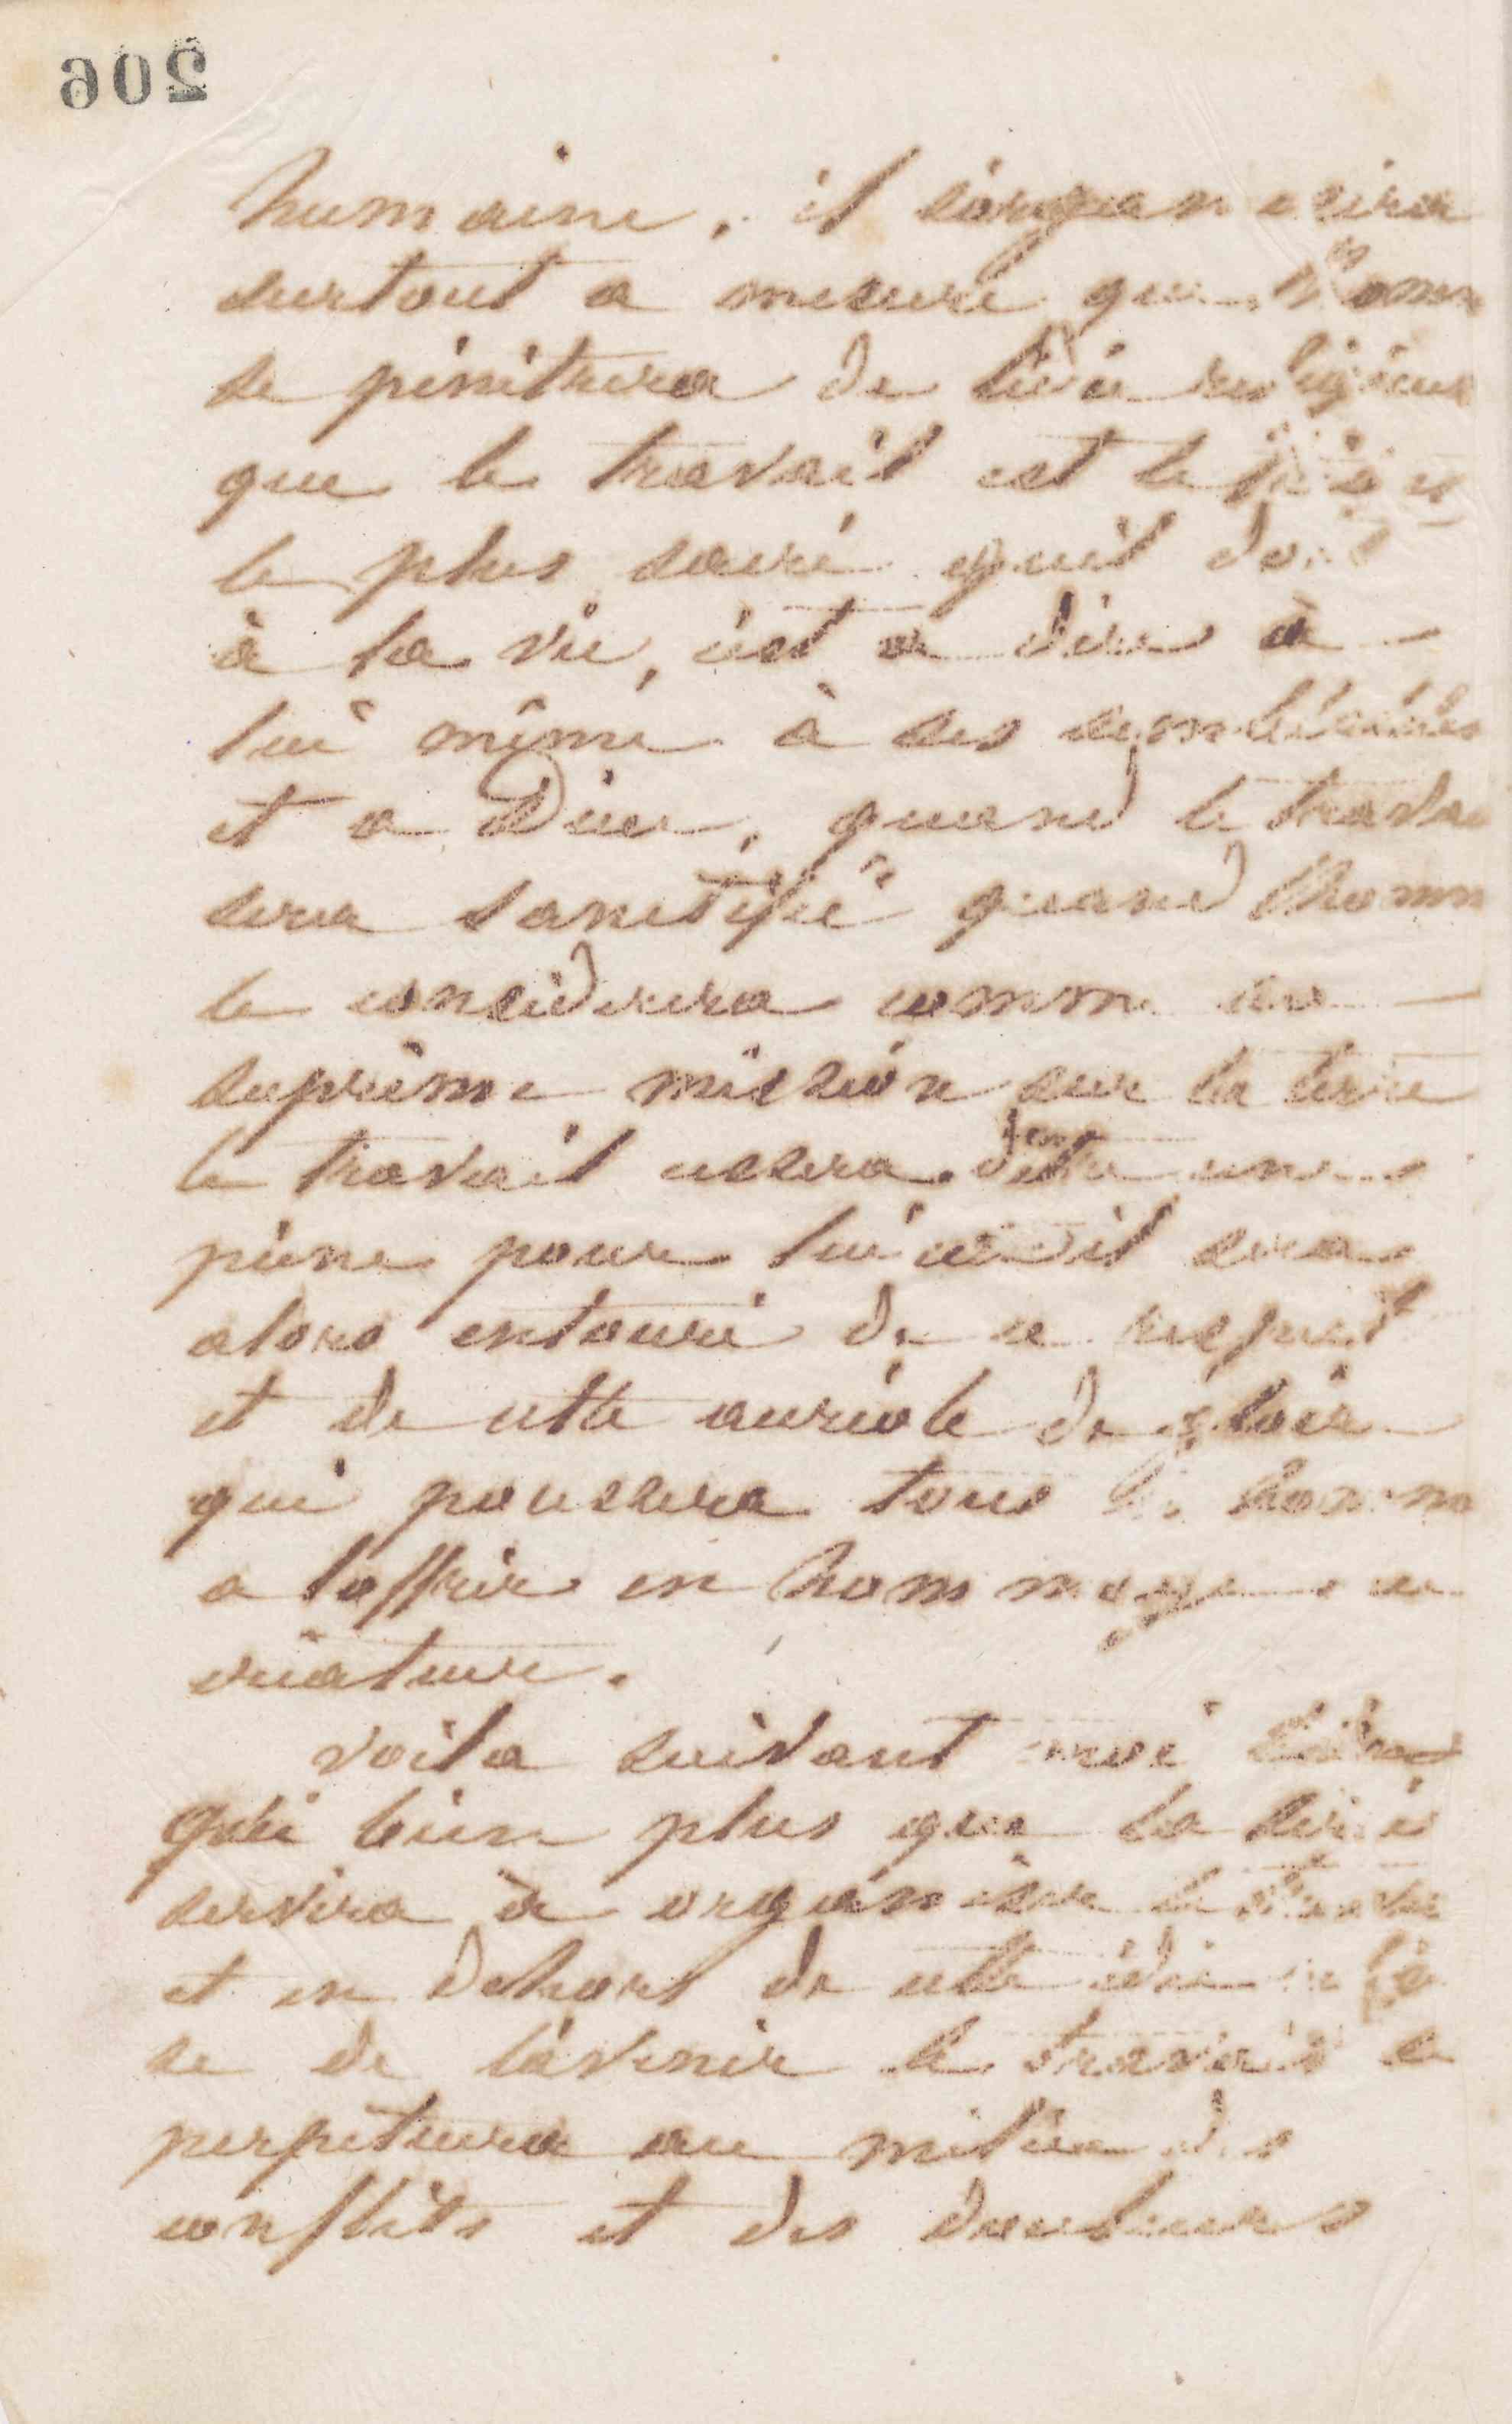 206
humaine. il sorganisera
surtout a mesure que l'hom
se pénétrera de lidée religieus
que le travail est le
le plus sacré quil doit
à la vie, cest a dire à
lui même à ses semblables
et a Dieu, quand le trava
sera sanctifié quand lhomm
le considerera comme sa
suprême mission sur la terre
le travail cessera detre une
peine pour lui il sera
alors entouré de ce respect
et de cette auréole de gloire
qui poussera tous les homm
a loffrir en hommage au
créateur.
voila suivant moi lidée
qui bien plus que la série
servira à organiser le trava
et en dehors de cette idée
se de lavenir le travail se
perpetuera au milieu des
conflits et des douleurs